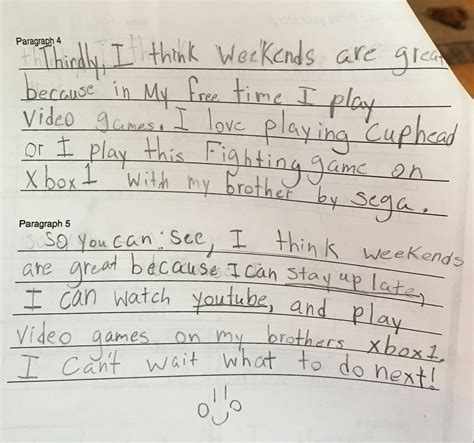 Paragraph 4
Thirdly, I think Weekends are great
because in My free time I play
Video games. I love playing Cuphead
or I play this Fighting game on
Xbox1 with my brother by sega.
Paragraph 5
So you can see, I think weekends
are great because I can stay up late,
I can watch youtube, and play
Video games on my brothers xbox1.
I Can't wait what to do next!